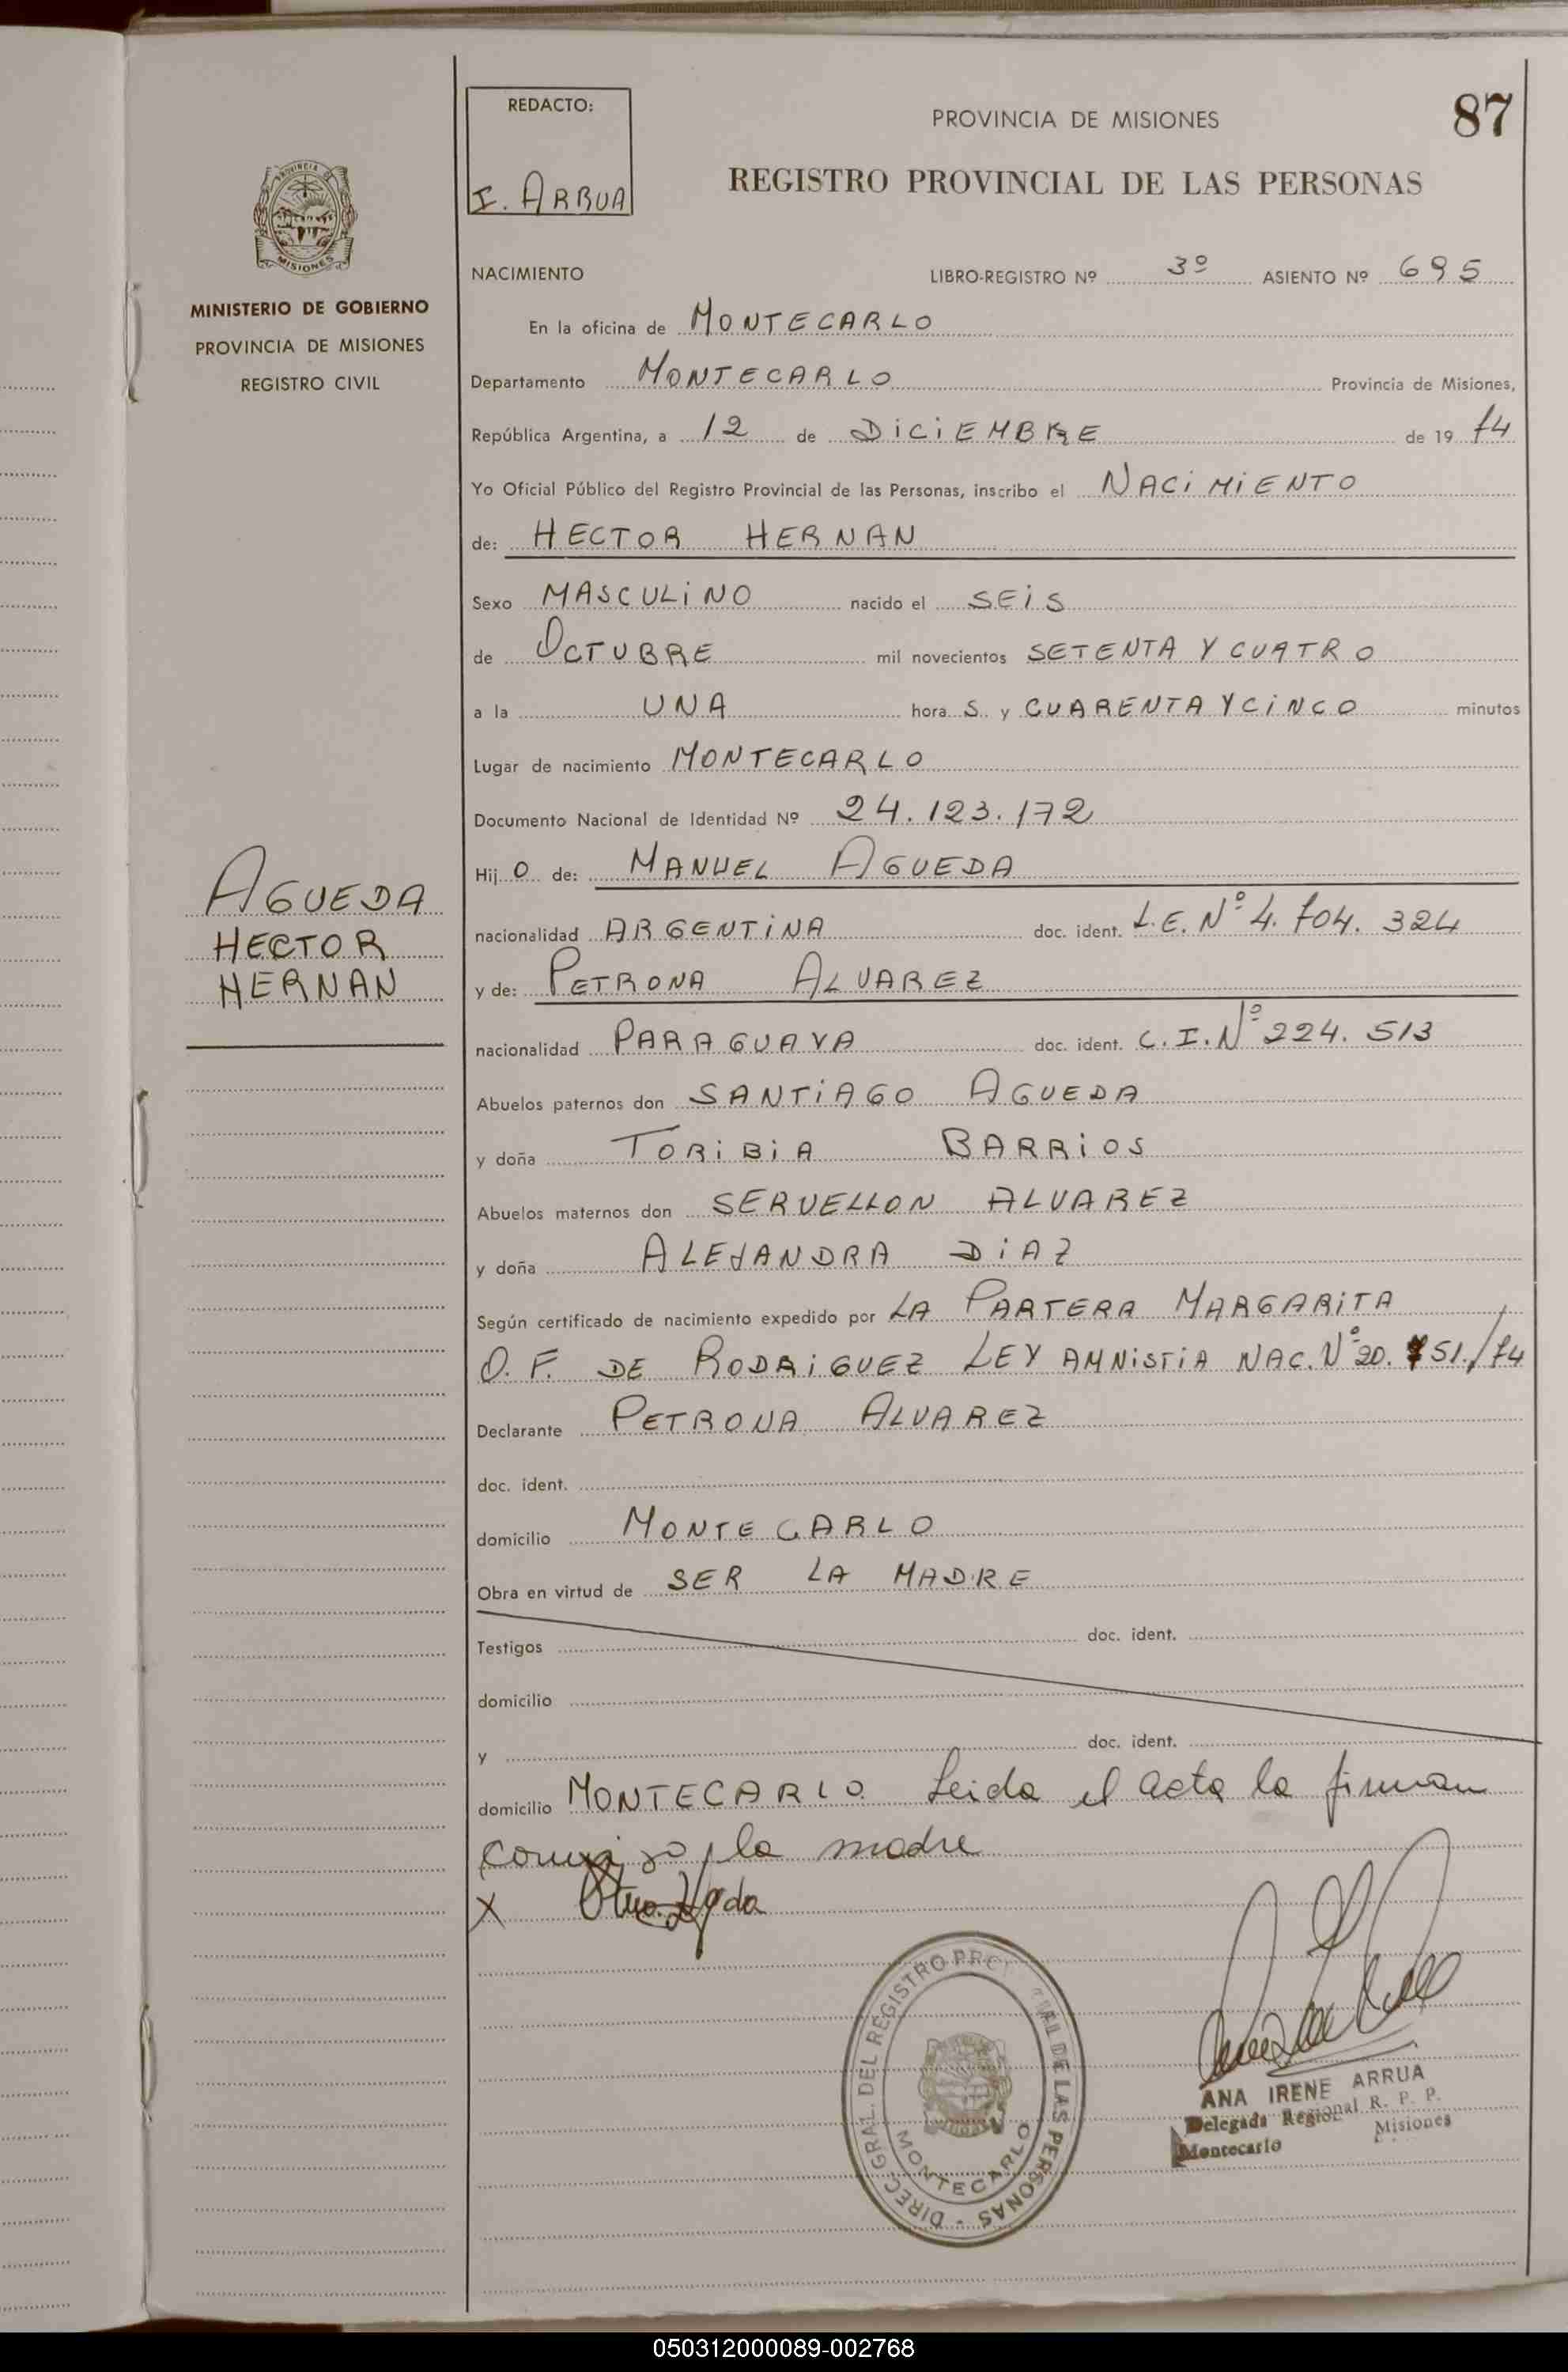 REDACTO:
I. ARRUA
PROVINCIA DE MISIONES
87
REGISTRO PROVINCIAL DE LAS PERSONAS
PROVINCIA DE
MISIONES
MINISTERIO DE GOBIERNO
PROVINCIA DE MISIONES
REGISTRO CIVIL
NACIMIENTO LIBRO-REGISTRO Nº 3º ASIENTO Nº 695
En la oficina de MONTECARLO
Departamento MONTECARLO Provincia de Misiones,
República Argentina, a 12 de DICIEMBRE de 19 74
Yo Oficial Público del Registro Provincial de las Personas, inscribo el NACIMIENTO
de: HECTOR HERNAN
Sexo MASCULINO nacido el SEIS
de OCTUBRE mil novecientos SETENTA Y CUATRO
a la UNA hora S y CUARENTA Y CINCO minutos
Lugar de nacimiento MONTECARLO
Documento Nacional de Identidad Nº 24.123.172
Hij O de: MANUEL AGUEDA
AGUEDA
HECTOR
HERNAN
nacionalidad ARGENTINA doc. ident. L.E. Nº 4.704.324
y de: PETRONA ALVAREZ
nacionalidad PARAGUAYA doc. ident. C.I. Nº 224.513
Abuelos paternos don SANTIAGO AGUEDA
y doña TORIBIA BARRIOS
Abuelos maternos don SERVELLON ALVAREZ
y doña ALEJANDRA DIAZ
Según certificado de nacimiento expedido por LA PARTERA MARGARITA
O. F. DE RODRIGUEZ LEY AMNISTIA NAC. Nº 20.751./74
Declarante PETRONA ALVAREZ
doc. ident.
domicilio MONTECARLO
Obra en virtud de SER LA MADRE
Testigos doc. ident.
domicilio
y doc. ident.
domicilio MONTECARLO Leida el acta la firman
la madre
X
DIREC. GRAL. DEL REGISTRO DE LAS PERSONAS -
MONTECARLO
ANA IRENE ARRUA
Delegada Regional R. P. P.
Montecarlo Misiones
050312000089-002768